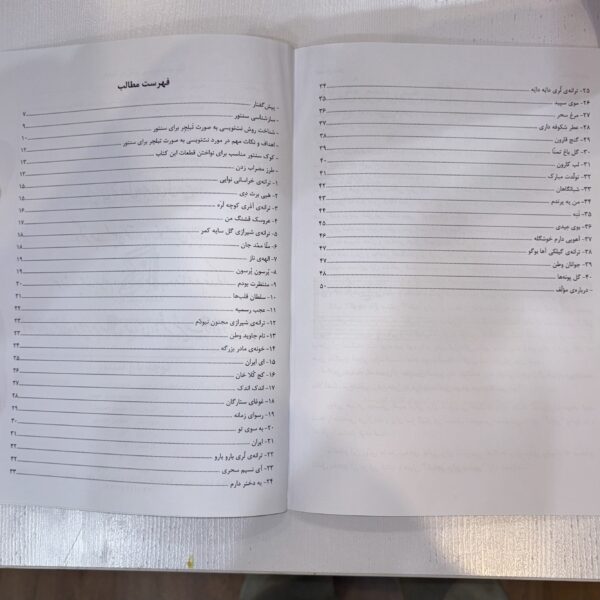 فهرست مطالب
- پیش‌گفتار ۷
- سازشناسی سنتور ۹
- شناخت روش نت‌نویسی به صورت تبلچر برای سنتور ۱۰
- اهداف و نکات مهم در مورد نت‌نویسی به صورت تبلچر برای سنتور ۱۲
- کوک سنتور مناسب برای نواختن قطعات این کتاب ۱۳
- طرز مضراب زدن ۱۳
۱- ترانه‌ی خراسانی نوایی ۱۵
۲- هپی برث دِی ۱۵
۳- ترانه‌ی آذری کوچه لَره ۱۶
۴- عروسک قشنگ من ۱۷
۵- ترانه‌ی شیرازی گل سایه کمر ۱۸
۶- ملّا ممّد جان ۱۸
۷- الهه‌ی ناز ۱۹
۸- پُرسون پُرسون ۱۹
۹- منتظرت بودم ۲۰
۱۰- سلطان قلب‌ها ۲۱
۱۱- عجب رسمیه ۲۲
۱۲- ترانه‌ی شیرازی مجنون نبودم ۲۳
۱۳- نام جاوید وطن ۲۳
۱۴- خونه‌ی مادر بزرگه ۲۴
۱۵- ای ایران ۲۵
۱۶- کج کُلا خان ۲۶
۱۷- اندک اندک ۲۷
۱۸- غوغای ستارگان ۲۸
۱۹- رسوای زمانه ۲۹
۲۰- به سوی تو ۳۰
۲۱- ایران ۳۱
۲۲- ترانه‌ی لُری یارو یارو ۳۲
۲۳- آی نسیم سحری ۳۲
۲۴- یه دختر دارم ۳۳
۲۵- ترانه‌ی لُری دایَه دایَه ۳۴
۲۶- موی سپید ۳۵
۲۷- مرغ سحر ۳۶
۲۸- عطر شکوفه داری ۳۷
۲۹- گنج قارون ۳۸
۳۰- گل باغ تمنّا ۳۹
۳۱- لب کارون ۴۰
۳۲- تولّدت مبارک ۴۱
۳۳- شبانگاهان ۴۲
۳۴- من یه پرندم ۴۳
۳۵- ننه ۴۴
۳۶- بوی عیدی ۴۵
۳۷- آهویی دارم خوشگله ۴۶
۳۸- ترانه‌ی گیلکی آها بوگو ۴۷
۳۹- جوانان وطن ۴۷
۴۰- گل پونه‌ها ۴۸
- درباره‌ی مؤلّف ۵۰